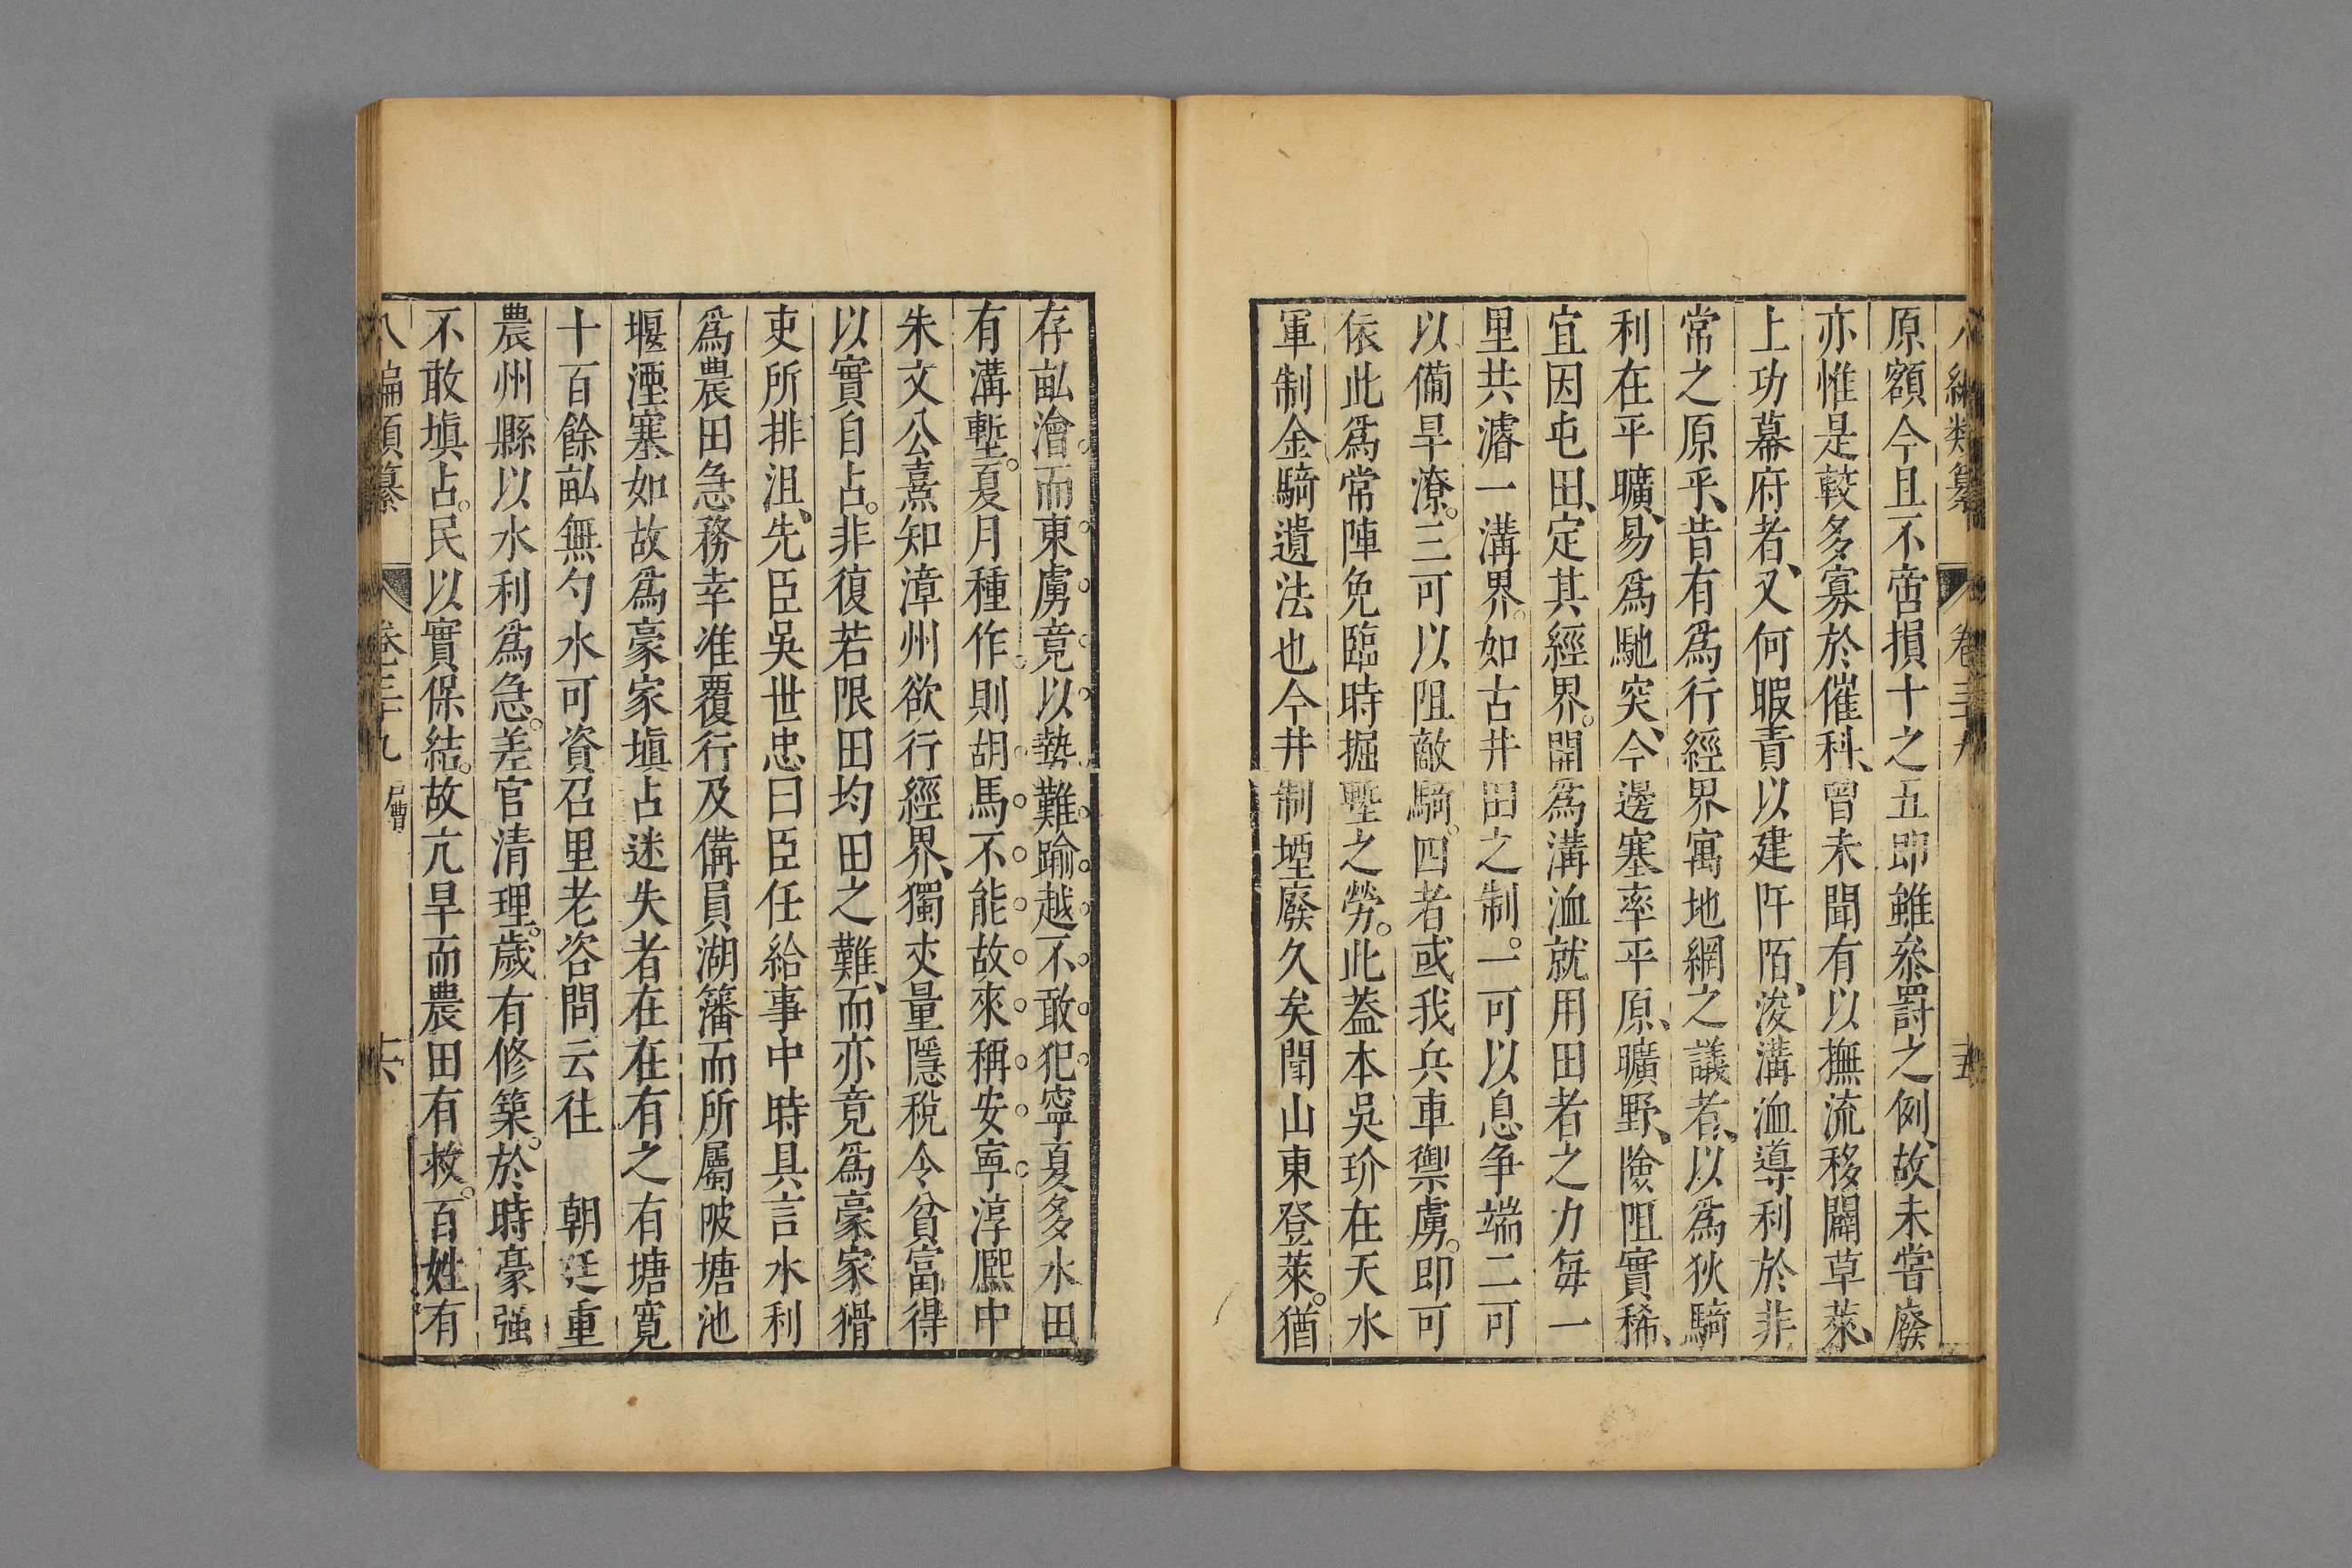 八編類纂 卷三十九 十五
原額今且不啻損十之五即雖叅罸之例、故未嘗廢
亦惟是較多寡於催科、曾未聞有以撫流移闢草萊、
上功幕府者、又何暇責以建阡陌、浚溝洫導利於非
常之原乎、昔有爲行經界寓地網之議者、以爲狄騎
利在平曠、易爲馳突、今邊塞率平原、曠野、險阻實稀、
宜因屯田、定其經界。開爲溝洫就用田者之力每一
里共濬一溝界。如古井田之制。一可以息争端二可
以備旱潦。三可以阻敵騎。四者或我兵車禦虜。即可
依此爲常陣免臨時掘塹之勞。此葢本吳玠在天水
軍制金騎遺法也今井制堙廢久矣聞山東登萊。猶
存畆澮而東虜竟以勢難踰越不敢犯寧夏多水田
有溝塹。夏月種作則胡馬不能故來稱安寧淳熈中
朱文公熹知漳州欲行經界、獨丈量隱稅令貧富得
以實自占。非復若限田均田之難、而亦竟爲豪家猾
吏所排沮、先臣吳世忠曰臣任給事中時具言水利
爲農田急務幸准覆行及備員湖籓而所屬陂塘池
堰湮塞如故爲豪家塡占迷失者在在有之有塘寛
十百餘畆無勺水可資召里老咨問云往 朝廷重
農州縣以水利爲急。差官清理。歲有修築。於時豪强
不敢塡占。民以實保結。故亢旱而農田有救。百姓有
八編類纂 卷三十九 戶曹 十六